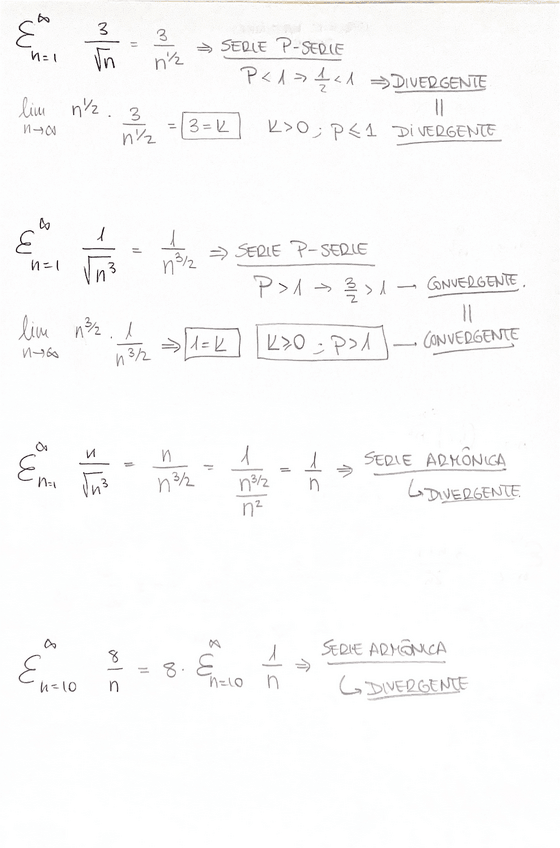 Σ_{n=1}^{∞} 3/√n = 3/n^{1/2} ⇒ SERIE P-SERIE
P < 1 ⇒ 1/2 < 1 ⇒ DIVERGENTE
||
lim_{n→∞} n^{1/2} · 3/n^{1/2} = 3 = K K > 0 ; P ≤ 1 DIVERGENTE
Σ_{n=1}^{∞} 1/√n³ = 1/n^{3/2} ⇒ SERIE P-SERIE
P > 1 → 3/2 > 1 — CONVERGENTE.
||
lim_{n→∞} n^{3/2} · 1/n^{3/2} ⇒ 1 = K K ≥ 0 ; P > 1 — CONVERGENTE
Σ_{n=1}^{∞} n/√n³ = n/n^{3/2} = 1/(n^{3/2}/n²) = 1/n ⇒ SERIE ARMÔNICA
↳ DIVERGENTE.
Σ_{n=10}^{∞} 8/n = 8 · Σ_{n=10}^{∞} 1/n ⇒ SERIE ARMÔNICA
↳ DIVERGENTE